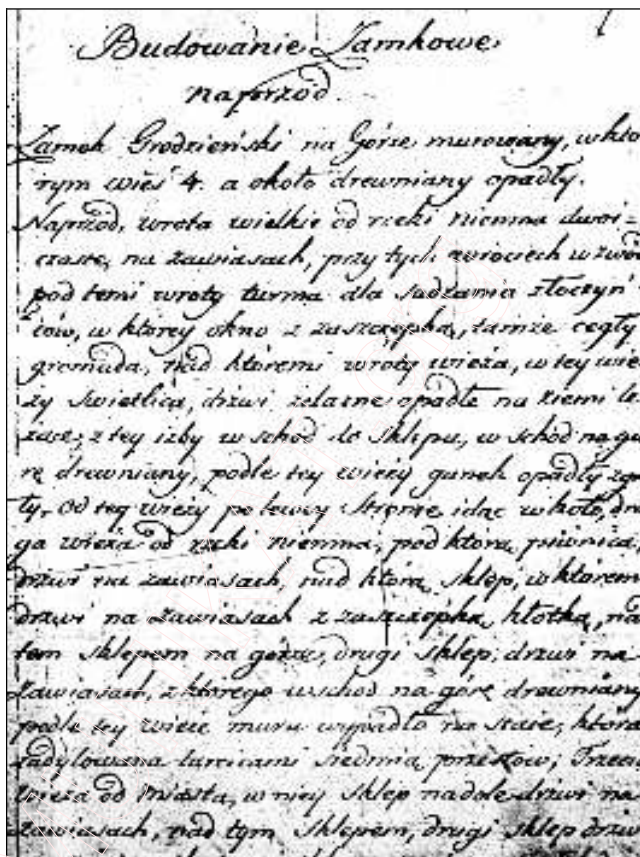 Budowanie Zamkowe
naprzód.
Zamek Grodzieński na Górze murowany, w któ
rym wież 4. a około drewniany opadły.
Naprzód, wrota wielkie od rzeki Niemna dwoi=
czaste, na zawiasach, przy tych wrociech wzwód
pod temi wroty turma dla sadzania złoczyń
ców, w ktorey okno z zaszczepką, tamże cegły
gromada, nad ktoremi wroty wieża, w tey wie
ży Swietlica, drzwi żelazne opadłe na ziemi le
żące; z tey izby wschód do Sklepu, wschód na gu
rę drewniany, podle tey wieży ganek opadły zgni
ły. Od tey wieży po lewey Stronie idąc w koło, dru
ga wieża od rzeki Niemna, pod którą piwnica,
drzwi na zawiasach, nad którą Sklep, w ktorem
drzwi na zawiasach z zaszczepką, kłotką, nad
tem Sklepem na górze, drugi Sklep, drzwi na
zawiasach, z ktorego wschod na górę drewniany
podle tey wieże muru wypadło na staie, ktora
zadylowana tarcicami siedmią przesłow; Trzecia
Wieża od Miasta, w niey Sklep na dole drzwi na
zawiasach, nad tym Sklepem, drugi Sklep drzwi